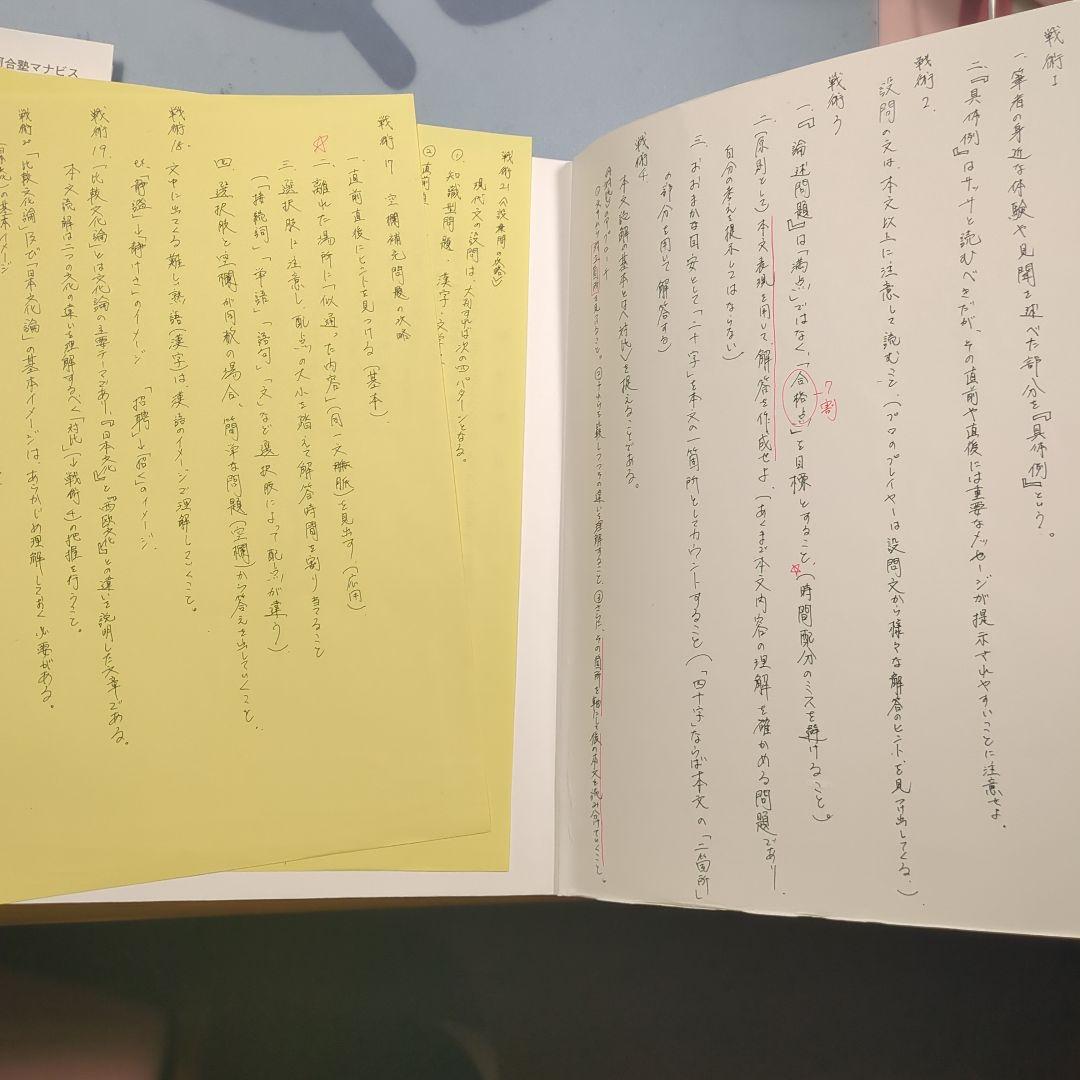 戦術1
一、筆者の身近な体験や見聞を述べた部分を『具体例』という。
二、『具体例』はサッサと読むべきだが、その直前や直後には重要なメッセージが提示されやすいことに注意せよ。
戦術2.
設問の文は、本文以上に注意して読むこと、(プロのプレイヤーは設問文から様々な解答のヒントを見つけ出してくる。)
戦術3
一、『論述問題』は「満点」ではなく、「合格点」を目標とすること、(時間配分のミスを避けること)。
7割
二、(原則として)本文表現を用いて、解答を作成せよ、(あくまで本文内容の理解を確かめる問題であり、
自分の考えを提示してはならない)
三、おおまかな目安として「二十字」を本文の一箇所としてカウントすること(「四十字」ならば本文の「二箇所」
の部分を用いて解答する)
戦術4
本文読解の基本とは〈対比〉を捉えることである。
〈対比〉のアプローチ
さらに、その箇所を軸にして後の本文を読み分けていくこと。
河合塾マナビス
戦術21(設問の攻略)
現代文の設問は、大別すれば次の四パターンとなる。
① 知識型問題、漢字・文
② 直前直
戦術17 空欄補充問題の攻略
一、直前直後にヒントを見つける(基本)
二、離れた場所に「似通った内容」(同一文脈)を見出す!(応用)
三、選択肢に注意し、配点の大小を踏えて解答時間を割り当てること
(「接続詞」「単語」「語句」「文」など選択肢によって配点が違う)
四、選択肢と空欄が同数の場合、簡単な問題(空欄)から答えを出していくこと、
戦術18.
文中に出てくる難しい熟語(漢字)は漢語のイメージで理解していくこと。
ex.「静謐」→「静けさ」のイメージ 「招聘」→「招く」のイメージ.
戦術19.「比較文化論」とは文化論の主要テーマであり、『日本文化』と『西欧文化』との違いを説明した文章である。
本文読解は二つの文化の違いを理解するべく「対比」(→戦術4)の把握を行うこと。
戦術20「比較文化論」及び「日本文化論」の基本イメージは、あらかじめ理解しておく必要がある。
の基本イメージ